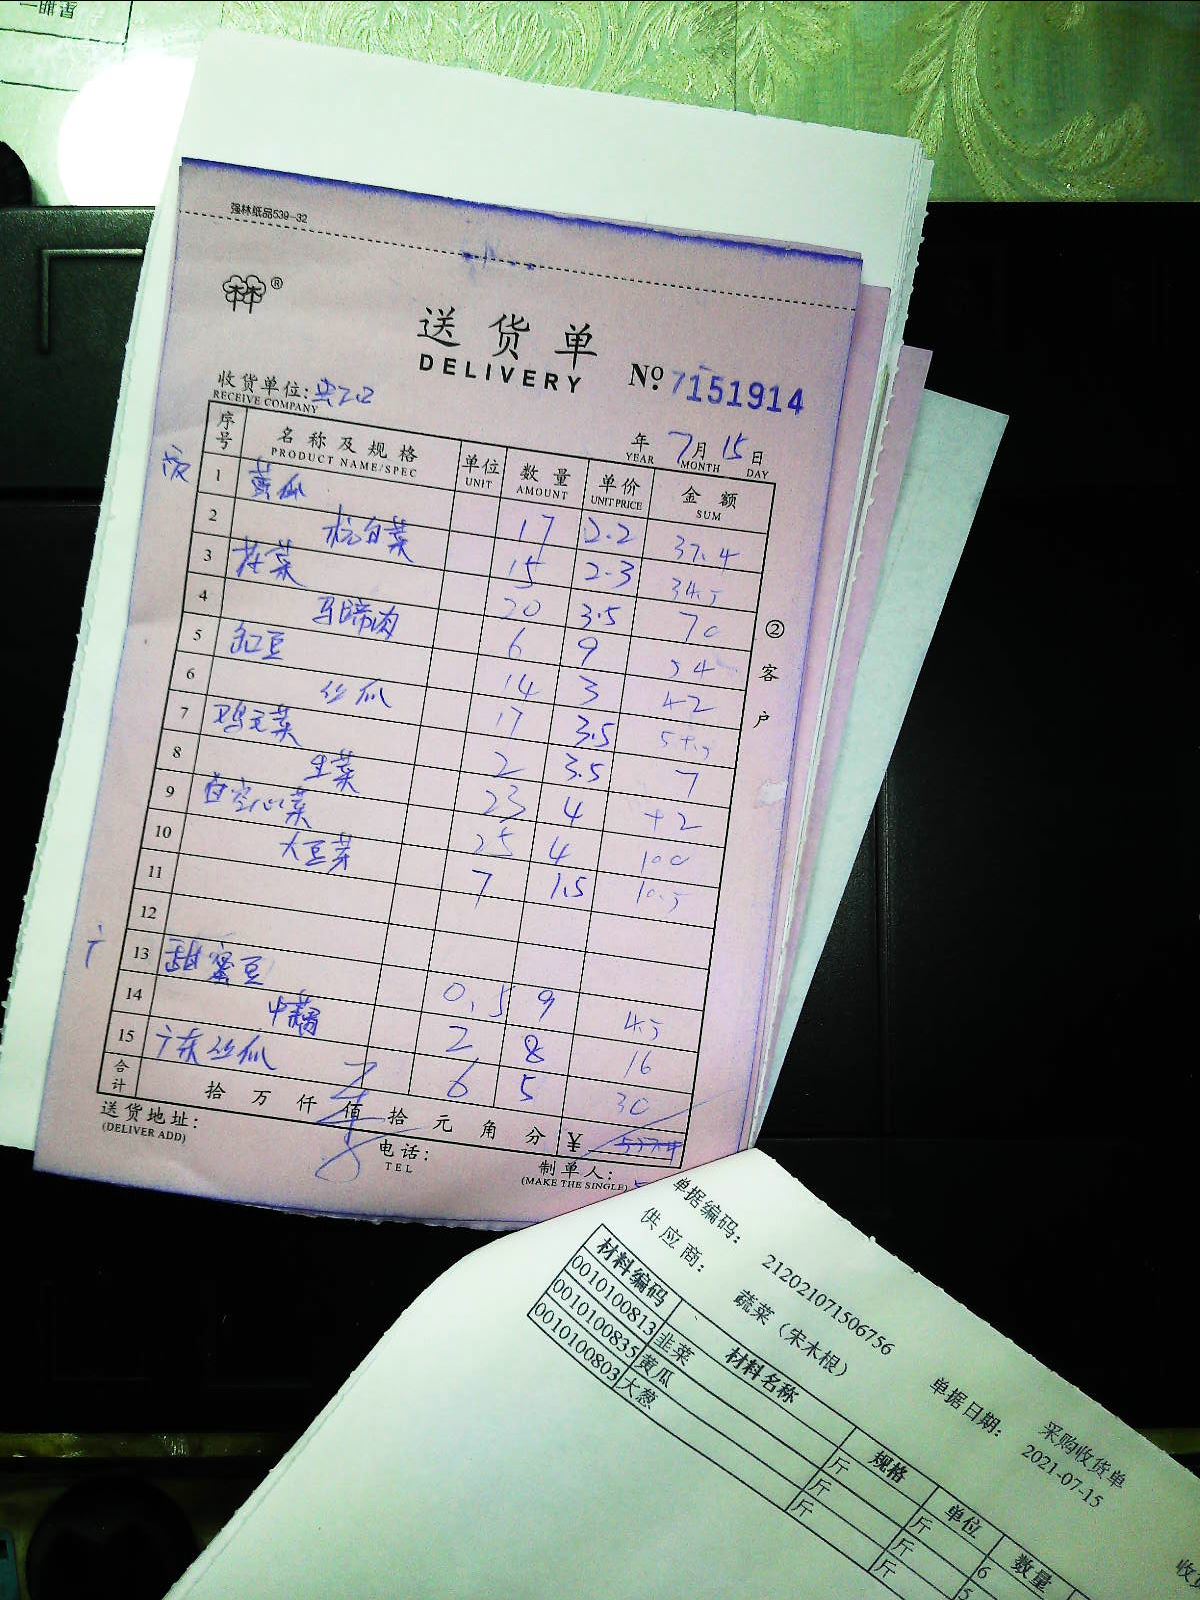 星期一
强林纸品539-32
®
送货单
DELIVERY
No. 7151914
收货单位:
RECEIVE COMPANY
年 7月 15日
YEAR MONTH DAY
序号 名称及规格 单位 数量 单价 金额
PRODUCT NAME/SPEC UNIT AMOUNT UNIT PRICE SUM
1 黄瓜 17 2.2 37.4
2 杭白菜 15 2.3 34.5
3 芹菜 20 3.5 70
4 马蹄肉 6 9 54
5 豇豆 14 3 42
6 丝瓜 17 3.5
7 鸡毛菜 2 3.5 7
8 生菜 23 4 92
9 白空心菜 25 4 100
10 大豆芽 7 1.5 10.5
11
12
13 甜蜜豆 0.5 9 4.5
14 中藕 2 8 16
15 广东丝瓜 6 5 30
合计 拾 万 仟 佰 拾 元 角 分 ¥
② 客户
送货地址:
(DELIVER ADD)
电话:
TEL
制单人:
(MAKE THE SINGLE)
采购收货单
单据编码: 212021071506756 单据日期: 2021-07-15
供应商: 蔬菜（宋木根）
材料编码 材料名称 规格 单位 数量
0010100813 韭菜 斤 斤 6
0010100835 黄瓜 斤 斤 5
0010100803 大葱 斤 斤